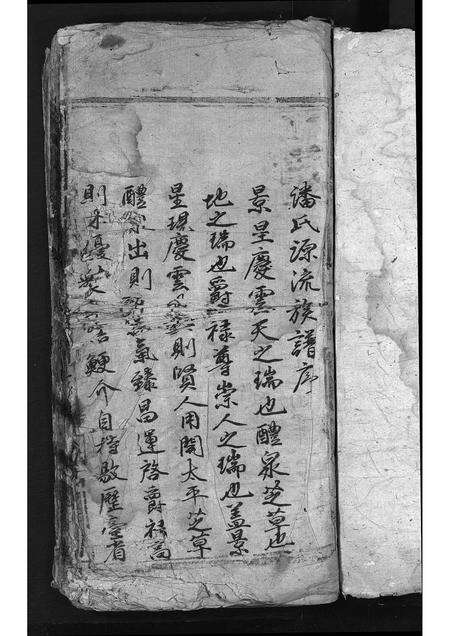 潘氏源流族譜序
景星慶雲天之瑞也醴泉芝草也
地之瑞也爵祿尊崇人之瑞也蓋景
星現慶雲則賢人用開太平芝草
醴泉出則氣錄昌運啓爵祿高
則鯁介自持敭歷臺省